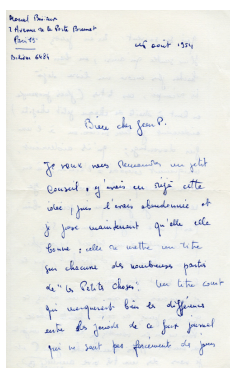 Marcel
2 Avenue de la Porte Brunet
Paris 19
Botzaris 6484
août 1954
Bien cher Jean P.
Je veux vous demander un petit
conseil. J'avais en cette
idée, puis l'avais abandonnée et
je pense maintenant qu'elle est
bonne : celle de mettre un titre
sur chacune des nombreuses parties
de "Les Petits choses". Un titre court
qui marquerait bien la différence
entre les jours de ce faux journal
qui ne sont pas forcément des jours